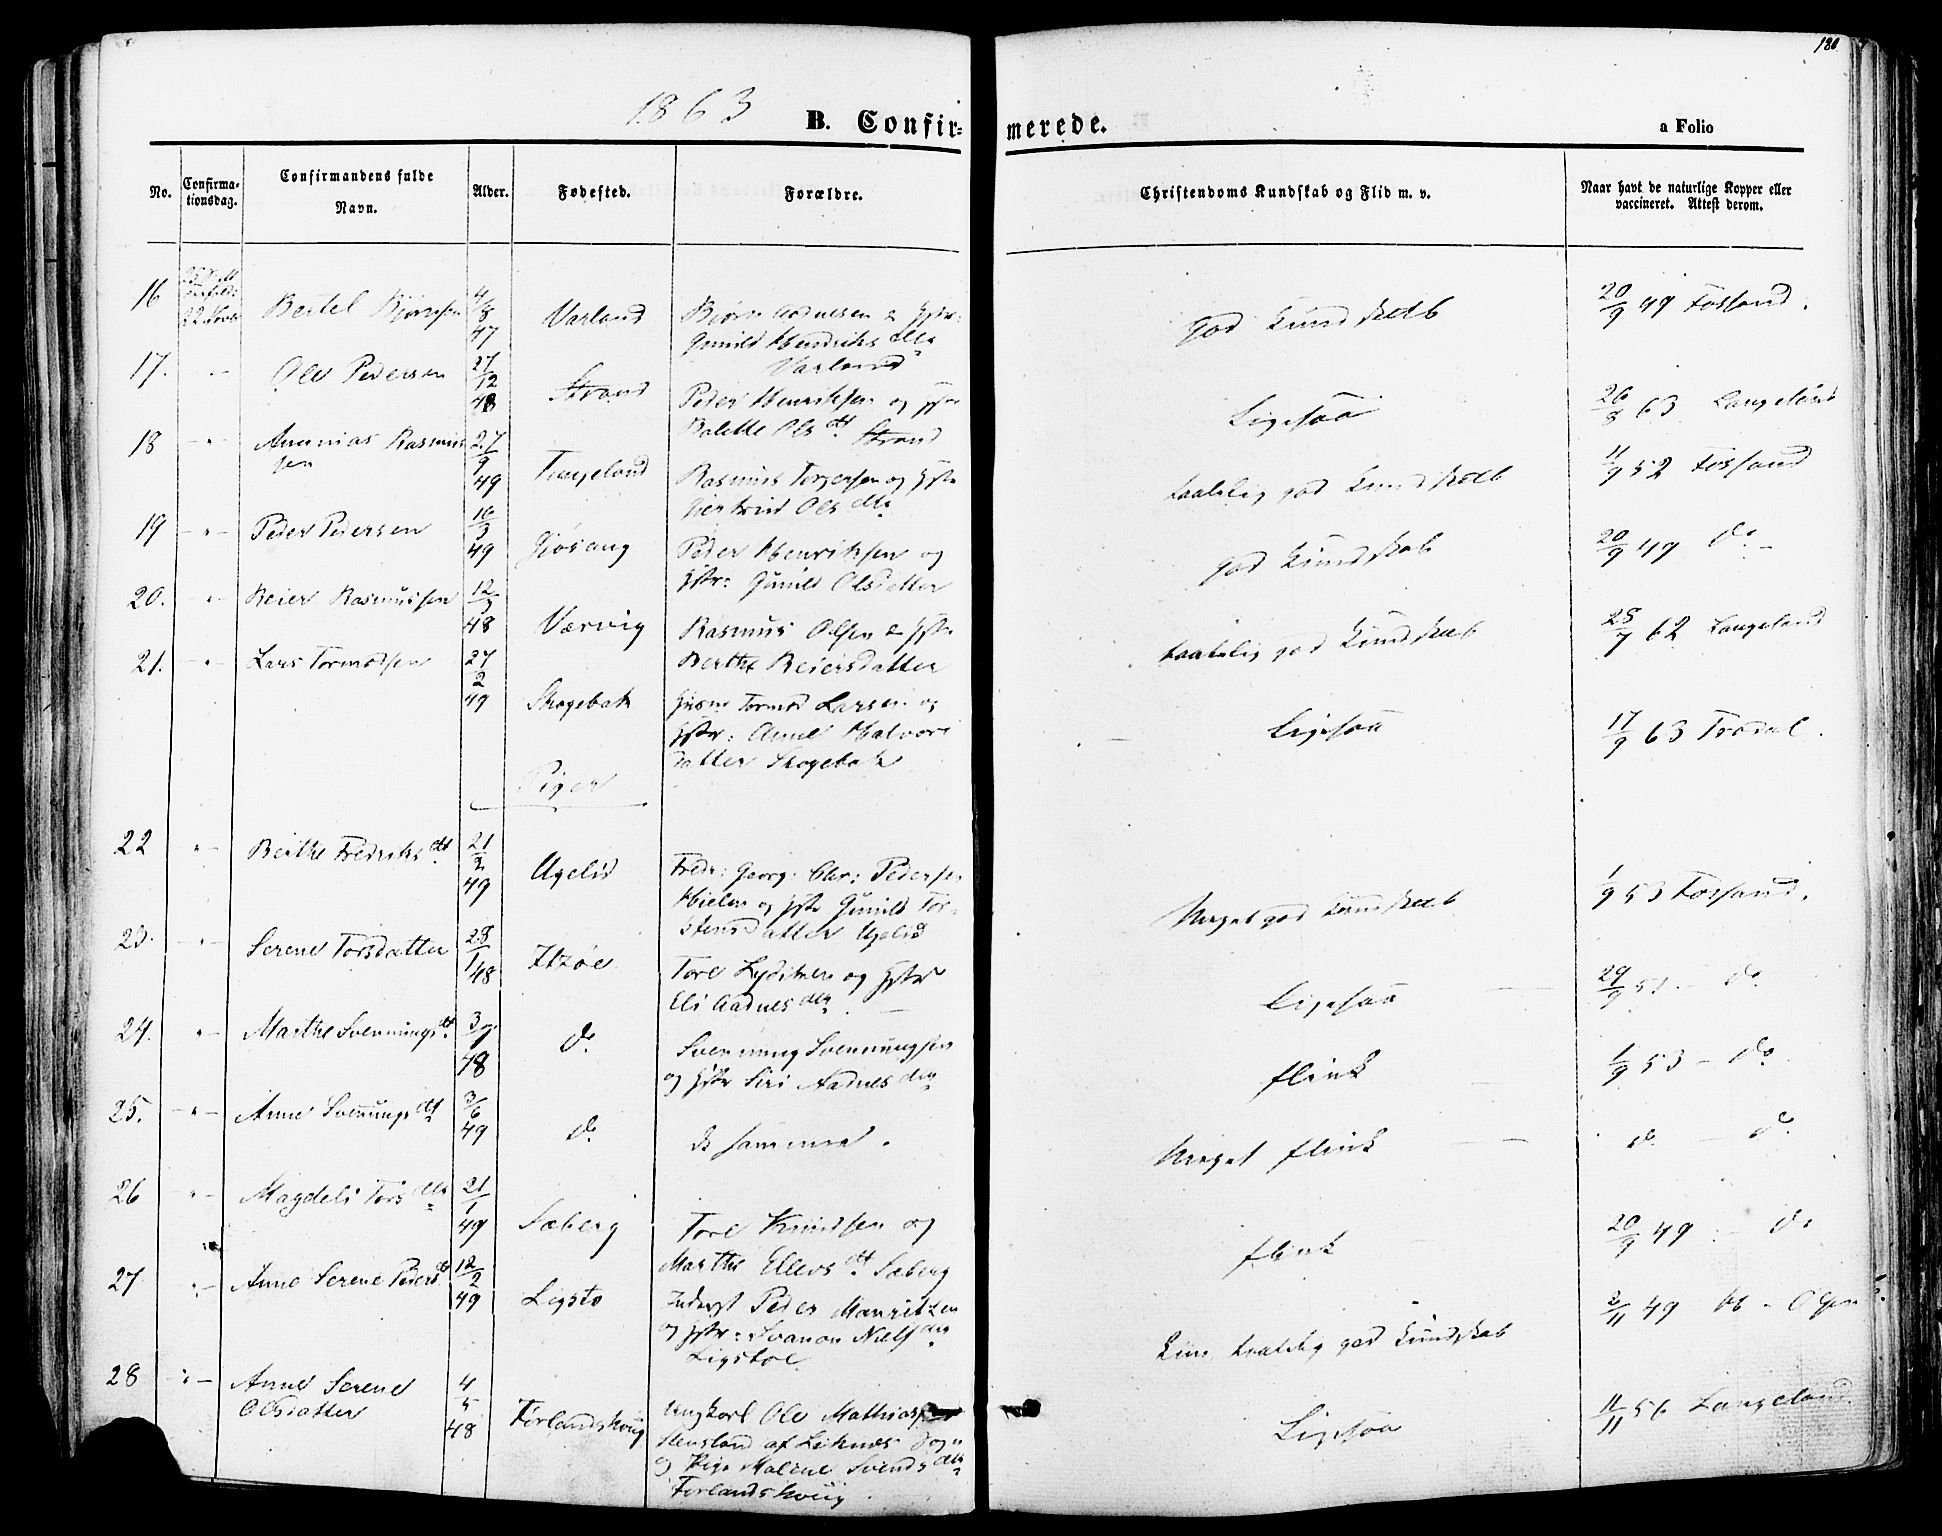 180
1863
B. Confirmerede.
a Folio
No.
Confirmationsdag.
Confirmandens fulde Navn.
Alder.
Fødested.
Forældre.
Christendoms Kundskab og Flid m. v.
Naar havt de naturlige Kopper eller vaccineret. Attest derom.
16 22 Bertel Bjørnsen 4/8 47 Varland Bjørn Aadnesen & Hstr:
Gunild Hendriksdtr
Varland
god Kundskab 20/9 49 Fossand.
17. Ole Pedersen 27/12 48 Strand Peder Henriksen og Hstr
Balette Olsdt Strand
Ligesaa 26/8 63 Langeland
18 - " - Ananias Rasmus
sen 27/9 49 Tengeland Rasmus Torgersen og Hstr
Giertrud Olsdtr
taalelig god Kundskab 11/9 52 Fossand
19 - " - Peder Pedersen 16/3 49 Giøsang Peder Henriksen og
Hstr: Gunild Olsdatter
god Kundskab 20/9 49 do -
20. - " - Reier Rasmussen 12/3 48 Værvig Rasmus Olsen & Hstr
Berthe Reiersdatter
taalelig god Kundskab 25/7 62 Langeland
21. - " - Lars Tormodsen 27/2 49 Skogebak Husm Tormod Larsen og
Hstr: Anne Halvors
datter Skogebak
Ligesaa 17/9 63 Trodal.
Piger
22 - " - Berthe Fredriksdt 21/2 49 Ugelid Fredr: Georg: Chr: Pedersen
Hielm og Hstr Gunild Tor-
stensdatter Ugelid
Meget god Kundskab 1/9 53 Fossand.
23. - " - Serene Torsdatter 28/1 48 Itzøe Tore og Hstr
Eli Aadnesdtr
Ligesaa 29/9 51 - do
24. - " - Marthe Svenningsdt 3/1 48 do Svenning Svenningsen
og Hstr Siri Aadnesdtr
flink 1/9 53 - do
25. - " - Anne Svenningsdt 3/6 49 do de samme.
Meget flink do - do
26 - " - Magdeli Torsdtr 21/1 49 Sæberg Tore Knudsen og
Marthe Ellevsdt Sæberg
flink 20/9 49 - do
27 - " - Anne Serene Pedersdt 12/2 49 Ligstø Inderst Peder Mauritzen
og Hstr: Svanon Nielsdtr
Ligstøe
taalelig god Kundskab 2/11 49
28 - " - Anne Serene
Olsdatter 4/5 48 Førlandskvig Ungkarl Ole Mathiassen
Stensland af Liknes Sogn
og Pige Malene Svendsdtr
Førlandskviig
Ligesaa 11/11 56 Langeland.